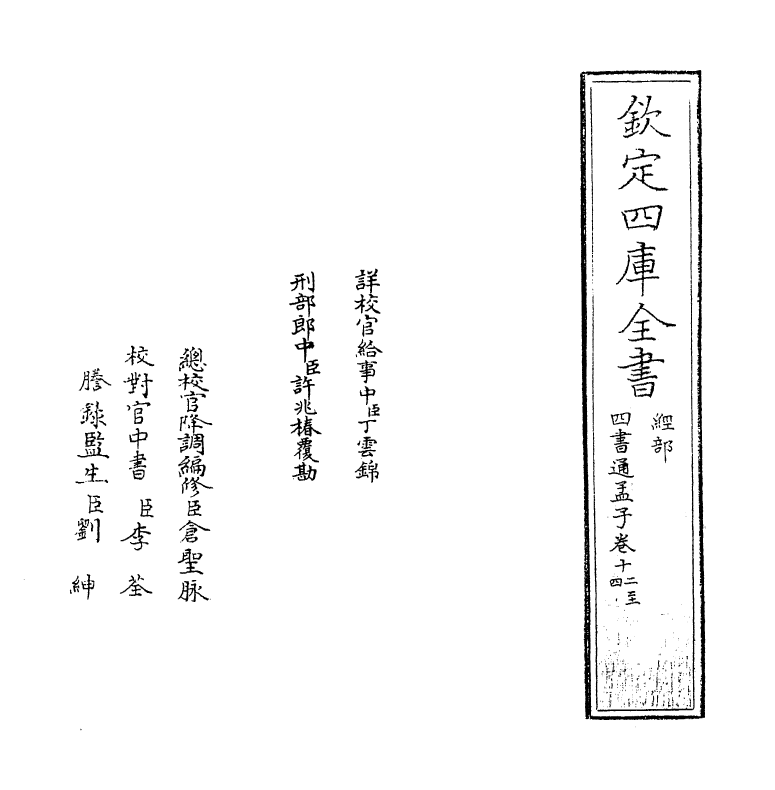 欽定四庫全書
經部
四書通孟子卷十二至四
詳校官給事中臣丁雲錦
刑部郎中臣許兆椿覆勘
總校官降調編修臣倉聖脉
校對官中書臣李荃
謄錄監生臣劉紳